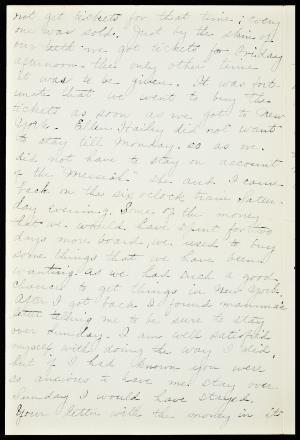 not get tickets for that time; every
one was sold. Just by the skin of
our teeth we got tickets for Friday
afternoon - the only other time
it was to be given. It was fort-
unate that we went to buy the
tickets as soon as we got to New
York. Ellen Hailey did not want
to stay till Monday. so as we
did not have to stay on account
of the "Messiah" she and I came
back on the six oclock train Satur-
day evening. Some of the money
that we would have spent for two
days more board, we used to buy
some things that we have been
wanting. as we had such a good
chance to get things in New York.
After I got back I found mamma's
letter telling me to be sure to stay
over Sunday. I am well satisfied
myself with doing the way I did,
but if I had known you were
so anxious to have me stay over
Sunday I would have stayed.
Your letter with the money in it